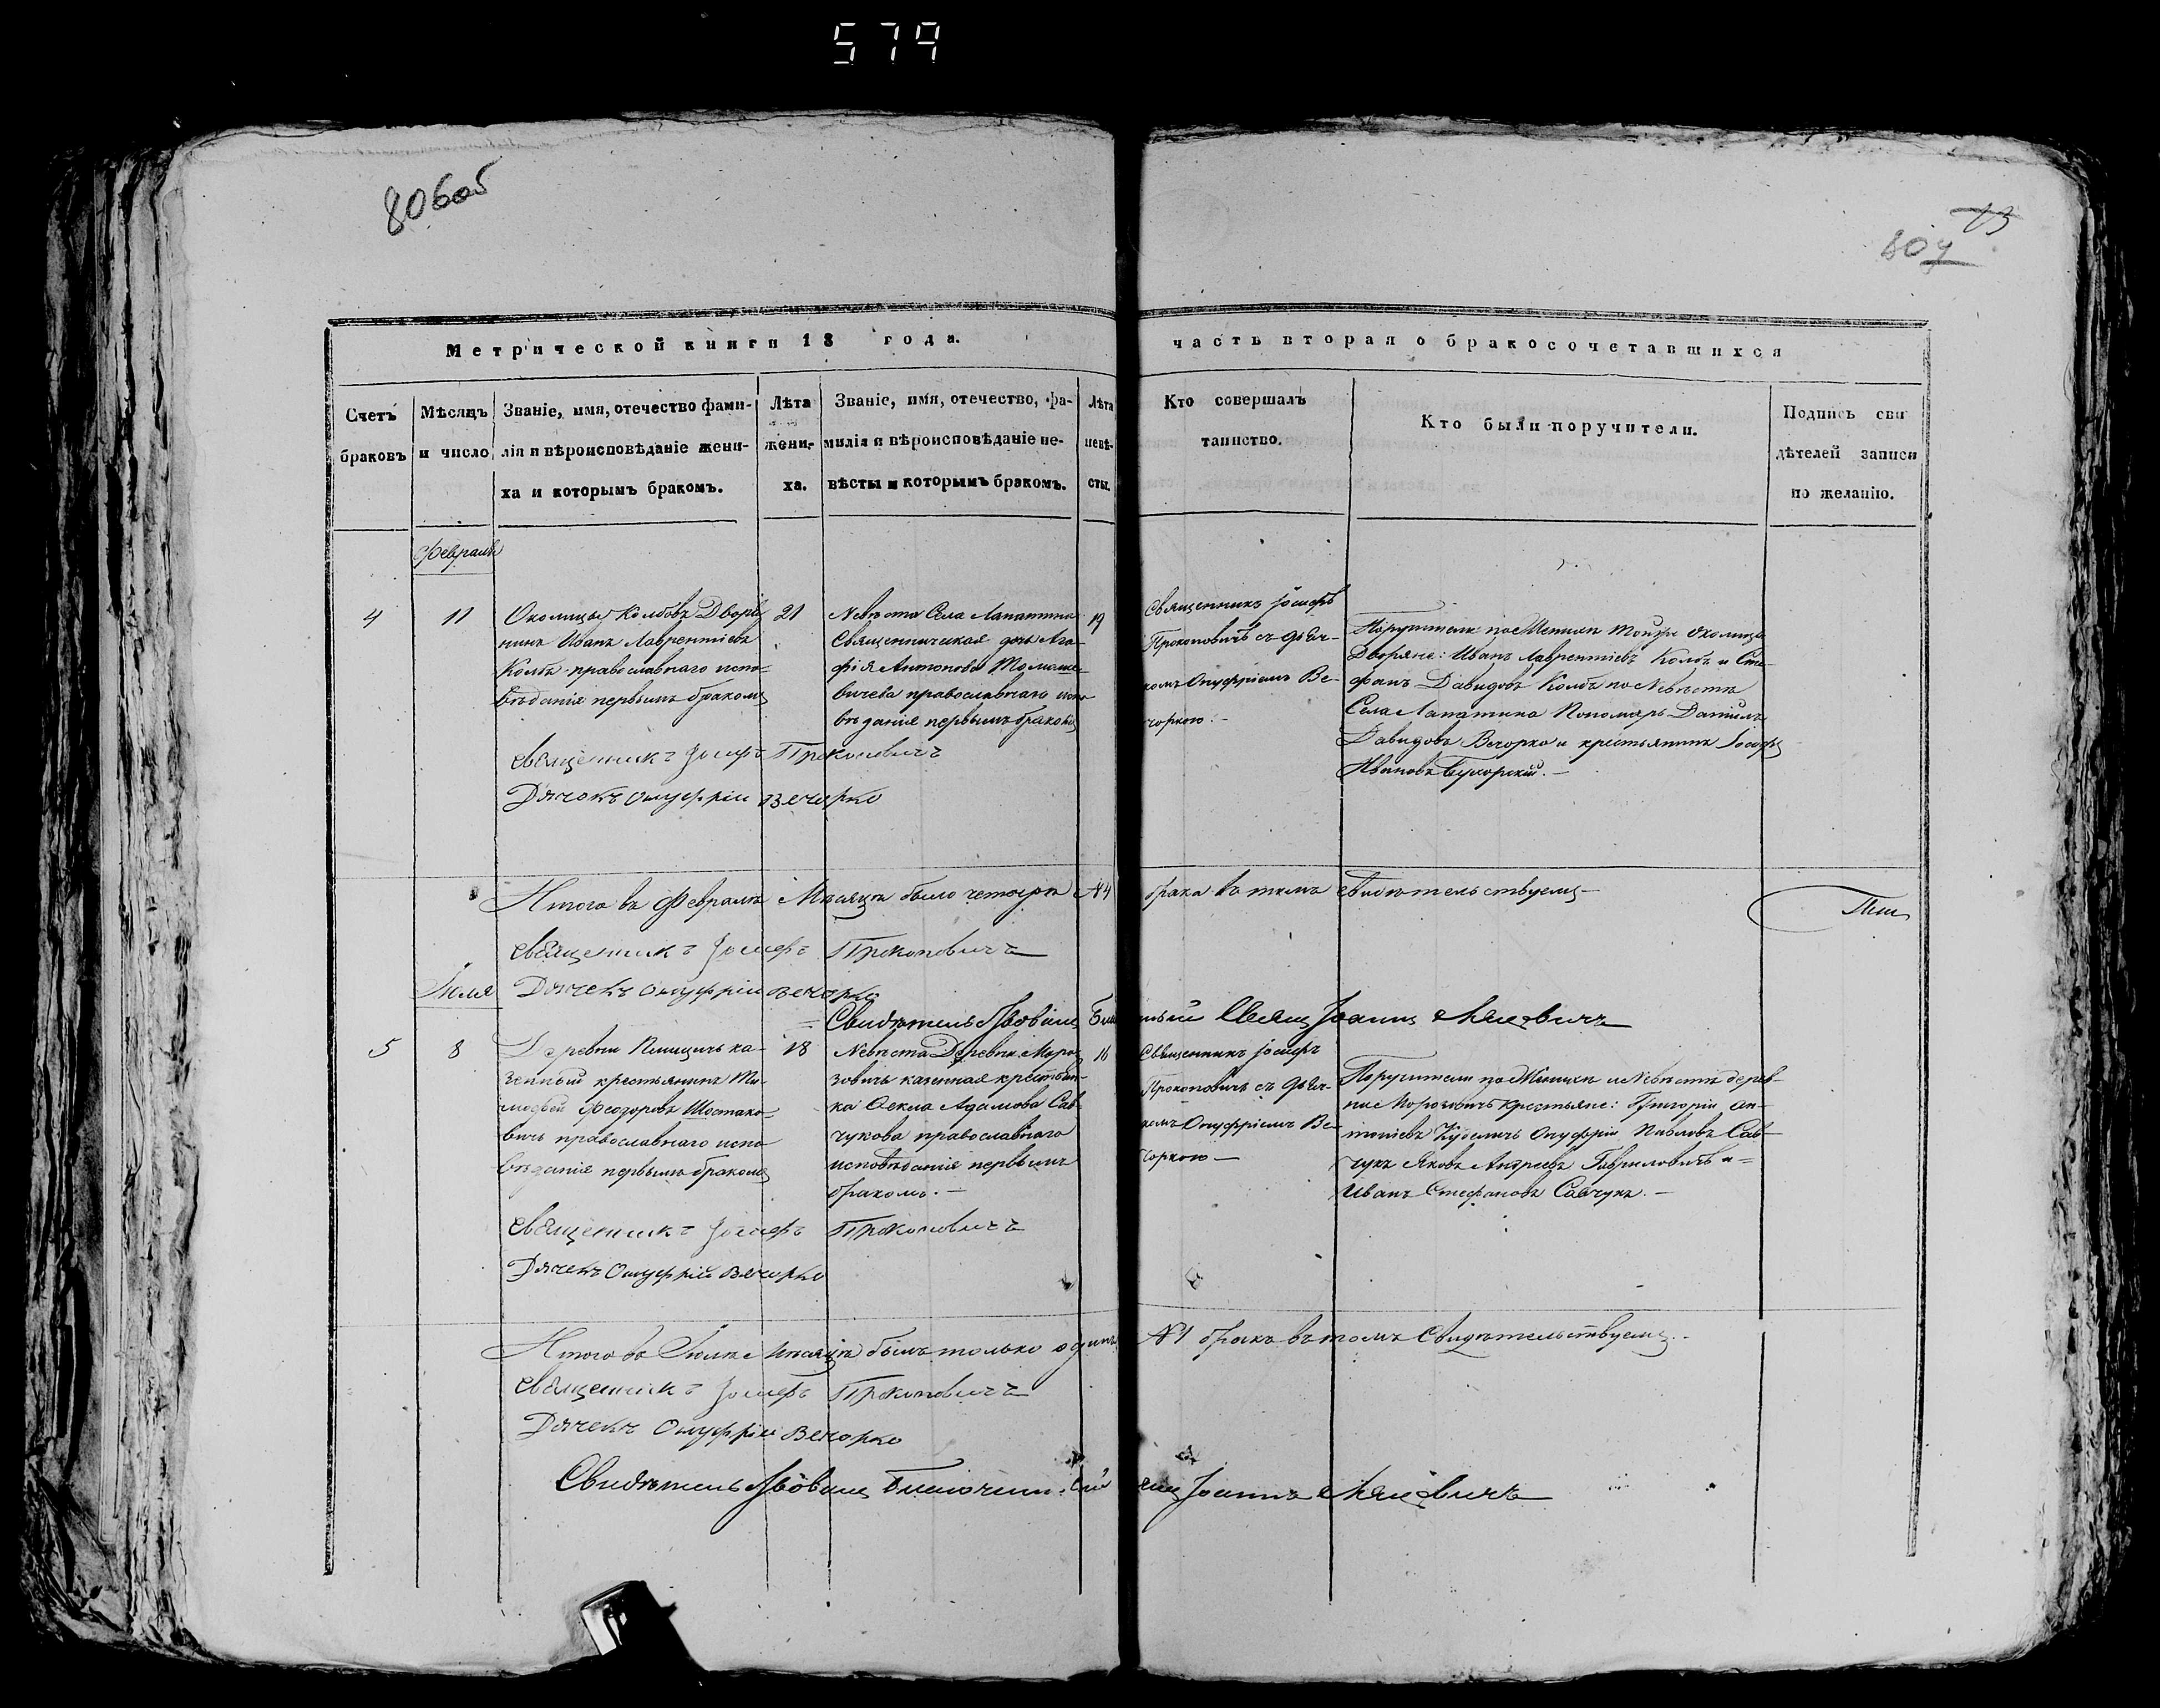 579
806об
13
807
Метрической книги 18 года.
часть вторая о бракосочетавшихся
Счетъ браковъ
Мѣсяцъ и число
Званіе, имя, отечество фами-
лія и вѣроисповѣданіе жени-
ха и которымъ бракомъ.
Лѣта
жени-
ха.
Званіе, имя, отечество, фа-
милія и вѣроисповѣданіе не-
вѣсты и которымъ бракомъ.
Лѣта
невѣ-
сты.
Кто совершалъ
таинство.
Кто были поручители.
Подпись сви
дѣтелей записи
по желанію.
Февраль
4
11
Околицы Колбовъ Дворя
нинъ Иванъ Лаврентіевъ
Колбъ православнаго испо-
вѣданія первымъ бракомъ
21
Невѣста Села Лапатина
Священническая дочь Ага-
фія Антонова Томаше-
вичева православнаго испо
вѣданія первымъ бракомъ
19
Священникъ Іосифъ
Прокоповичъ съ дьяч-
комъ Онуфріемъ Ве-
чоркою.-
Поручители по Женихѣ тойже околицы
Дворяне: Иванъ Лаврентіевъ Колбъ и Сте-
фанъ Давидовъ Колбъ по Невѣстѣ
Села Лапатина Пономарь Даніилъ
Давидовъ Вечорко и крестьянинъ Іосифъ
Ивановъ
Священникъ Іосифъ Прокоповичъ
Дячекъ Онуфрій Вечорко
Итого въ Февралѣ Мѣсяцѣ было четыре №4 брака въ томъ свидѣтельствуемъ-
Священникъ Іосифъ Прокоповичъ
Дячекъ Онуфрій Вечорко
Іюля
Свидѣтель Священ Іоаннъ
5
8
Деревни ка-
зенный крестьянинъ Ти-
мофей Феодоровъ Шостако-
вичъ православнаго испо
вѣданія первымъ бракомъ
18
Невѣста Деревни Моро
зовичъ казенная крестьян-
ка Текла Адамова Сав-
чукова православнаго
исповѣданія первымъ
бракомъ.-
16
Священникъ Іосифъ
Прокоповичъ съ дьяч-
комъ Онуфріемъ Ве-
чоркою-
Поручители по Женихѣ и Невѣстѣ дерев-
ни Морозовичъ Крестьяне: Григорій Ан-
тоніевъ Онуфрій Павловъ Сав-
чукъ Яковъ Андреевъ Гавриловичъ и
Иванъ Стефановъ Савчукъ.-
Священникъ Іосифъ Прокоповичъ
Дячекъ Онуфрій Вечорко
Итого въ Іюлѣ Мѣсяцѣ былъ только одинъ №1 бракъ въ томъ свидѣтельствуемъ.-
Священникъ Іосифъ Прокоповичъ
Дячекъ Онуфрій Вечорко
Свидѣтель Іоаннъ